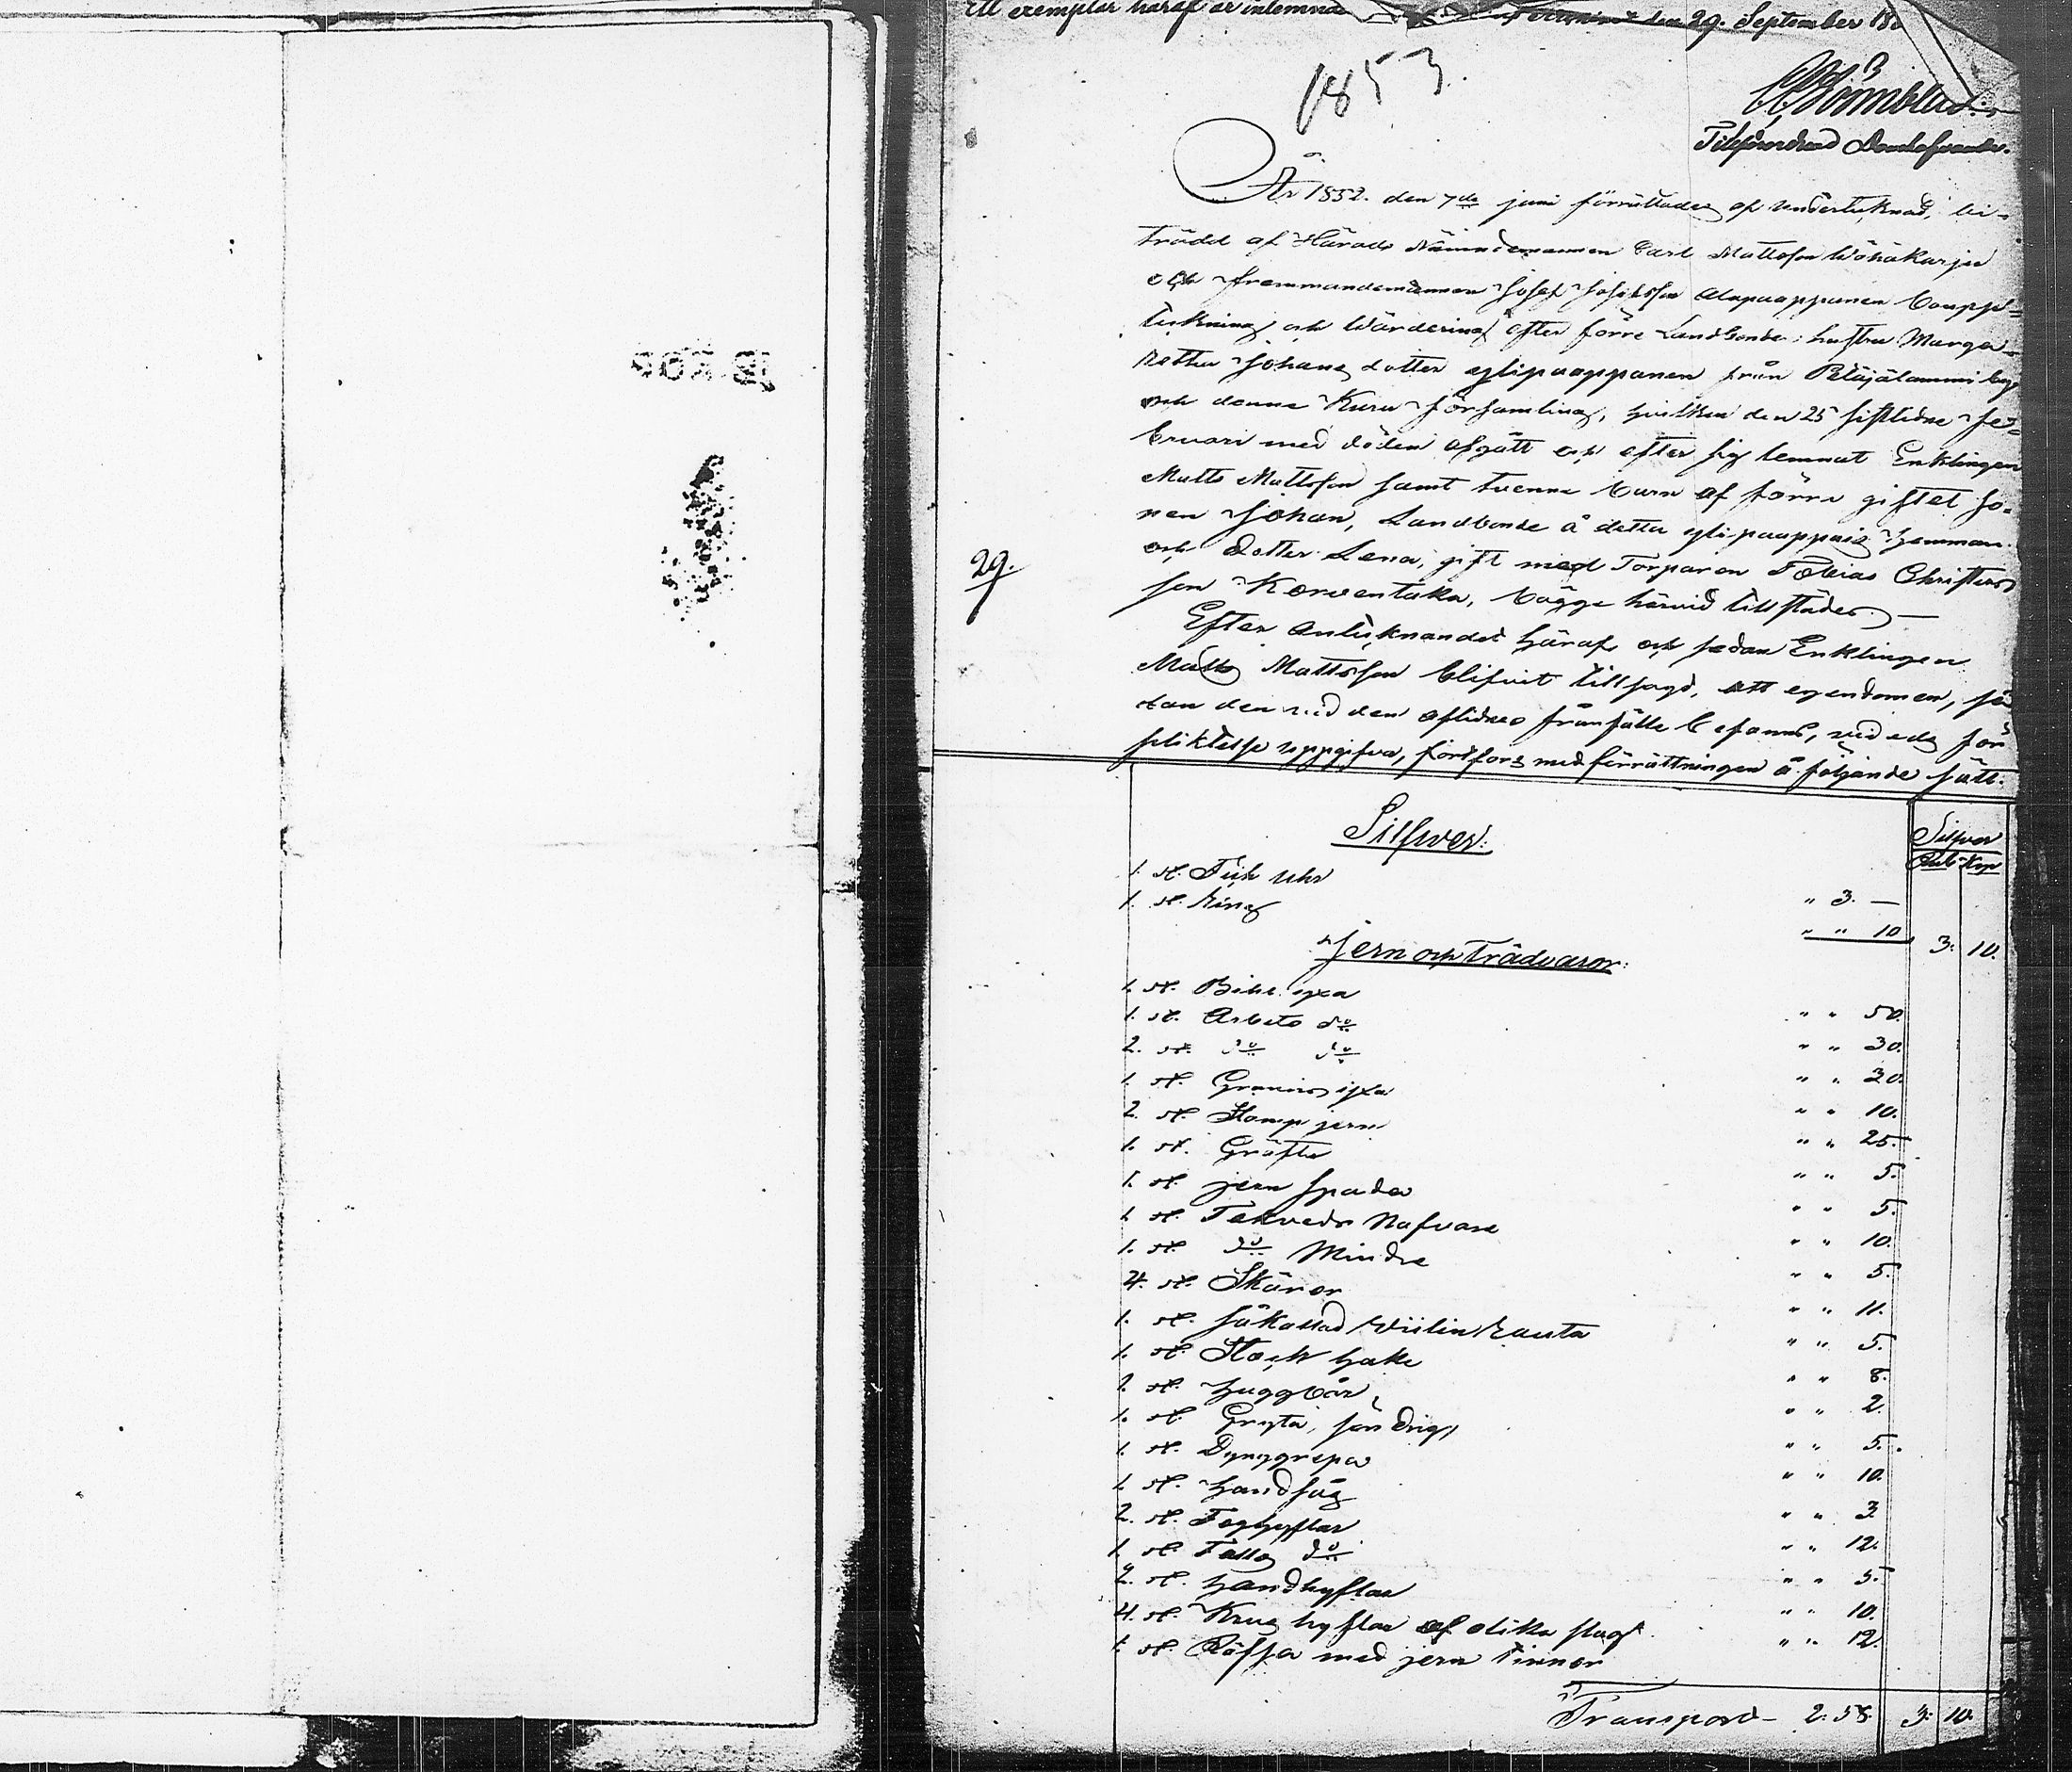 Ett exemplar häraf är inlemnadt den 29. September 18
1853.
Tillförordnad Domhafvande.
År 1852. den 7de juni förrättades af undertecknad, bi-
trädd af Härads Nämndemannen Carl Mattsson Wähäkarju
och fremmandemannen Josef Josefsson Alapaappanen Boupp-
tekning och Wärdering efter förre Landbonde hustru Marga-
retha Johans dotter Ylipaappanen från Petäjälammi by
och denna Kuru Församling, hvilken den 25 sistledne Fe-
bruari med döden afgått och efter sig lemnat Enklingen
Matts Mattsson samt tvenne barn af förra giftet So-
nen Johan, Landbonde å detta Ylipaappais hemman
och dotter Lena, gift med Torparen Tobias Christers
son Korventaka, bägge härvid tillstädes —
29.
Efter antecknandet häraf och sedan Enklingen
Matts Mattsson blifvit tillsagd, att egendomen, så
dan den vid den aflidnes frånfälle befanns, vid eds för
pliktelse uppgifva, fortfors med förrättningen å följande sätt.
Silfwer:
Silfver
Rub Kop
1. st. Fick Uhr " 3. —
1. st. Ring " " 10 3. 10.
Jern och Trädvaror:
1. st. Bihl. yxa " " 50.
1. st. Arbets do " " 30.
2. st. do do " " 20.
1. st. yxa " " 10.
2. st. Stamp jern " " 25.
1. st. Gräfta " " 5.
1. st. jern Spada " " 5.
1. st. Nafvare " " 10.
1. st. do Mindre " " 5.
4. st. Skäror " " 11.
1. st. såkallad Viilin rauta " " 5.
1. st. Stock hake " " 8.
1. st. huggbår " " 2.
1. st. Gryta, söndrig " " 5.
1. st. Dynggrepa " " 10.
1. st. Handsåg " " 3.
2. st. Foghyflar " " 12.
1. st. do " " 5.
2. st. Handhyflar " " 10.
4. st. hyflar af olika slag " " 12.
1. st. Räfsa med jern tinnar
Transport 2. 58. 3. 10.